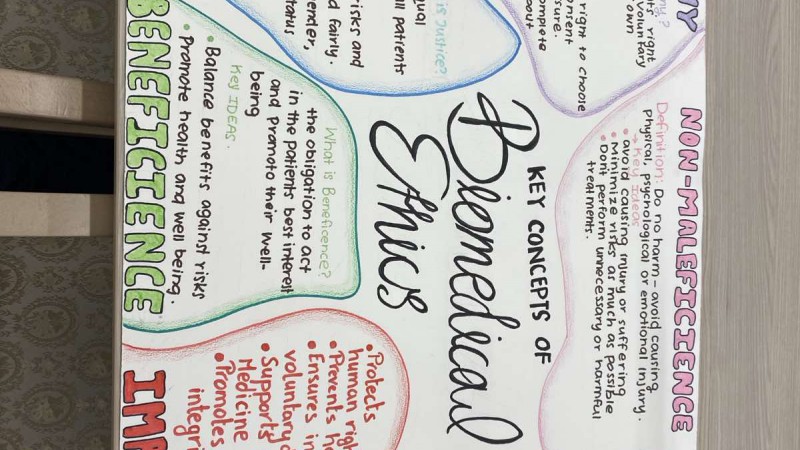 MY
my?
its right
voluntary
own
right to choose
onsent
sure:
omplete
bout
NON-MALEFICIENCE
Definition: Do no harm - avoid causing
physical, psychological or emotional injury.
→ Key Ideas
• avoid causing injury or suffering
• Minimize risks as much as possible
• Dont perform unnecessary or harmful
treatments.
KEY CONCEPTS OF
Biomedical
Ethics
is Justice?
qual
ll patients
risks and
d fairly.
ender,
tatus
What is Beneficence?
the obligation to act
in the patients best interest
and promoto their well-
being
Key IDEAS.
• Balance benefits against risks
• Promote health and well being.
BENEFICIENCE
• Protects
human righ
• Prevents ha
• Ensures in
voluntary
• Supports
Medicine
• Promotes
integri
IMP